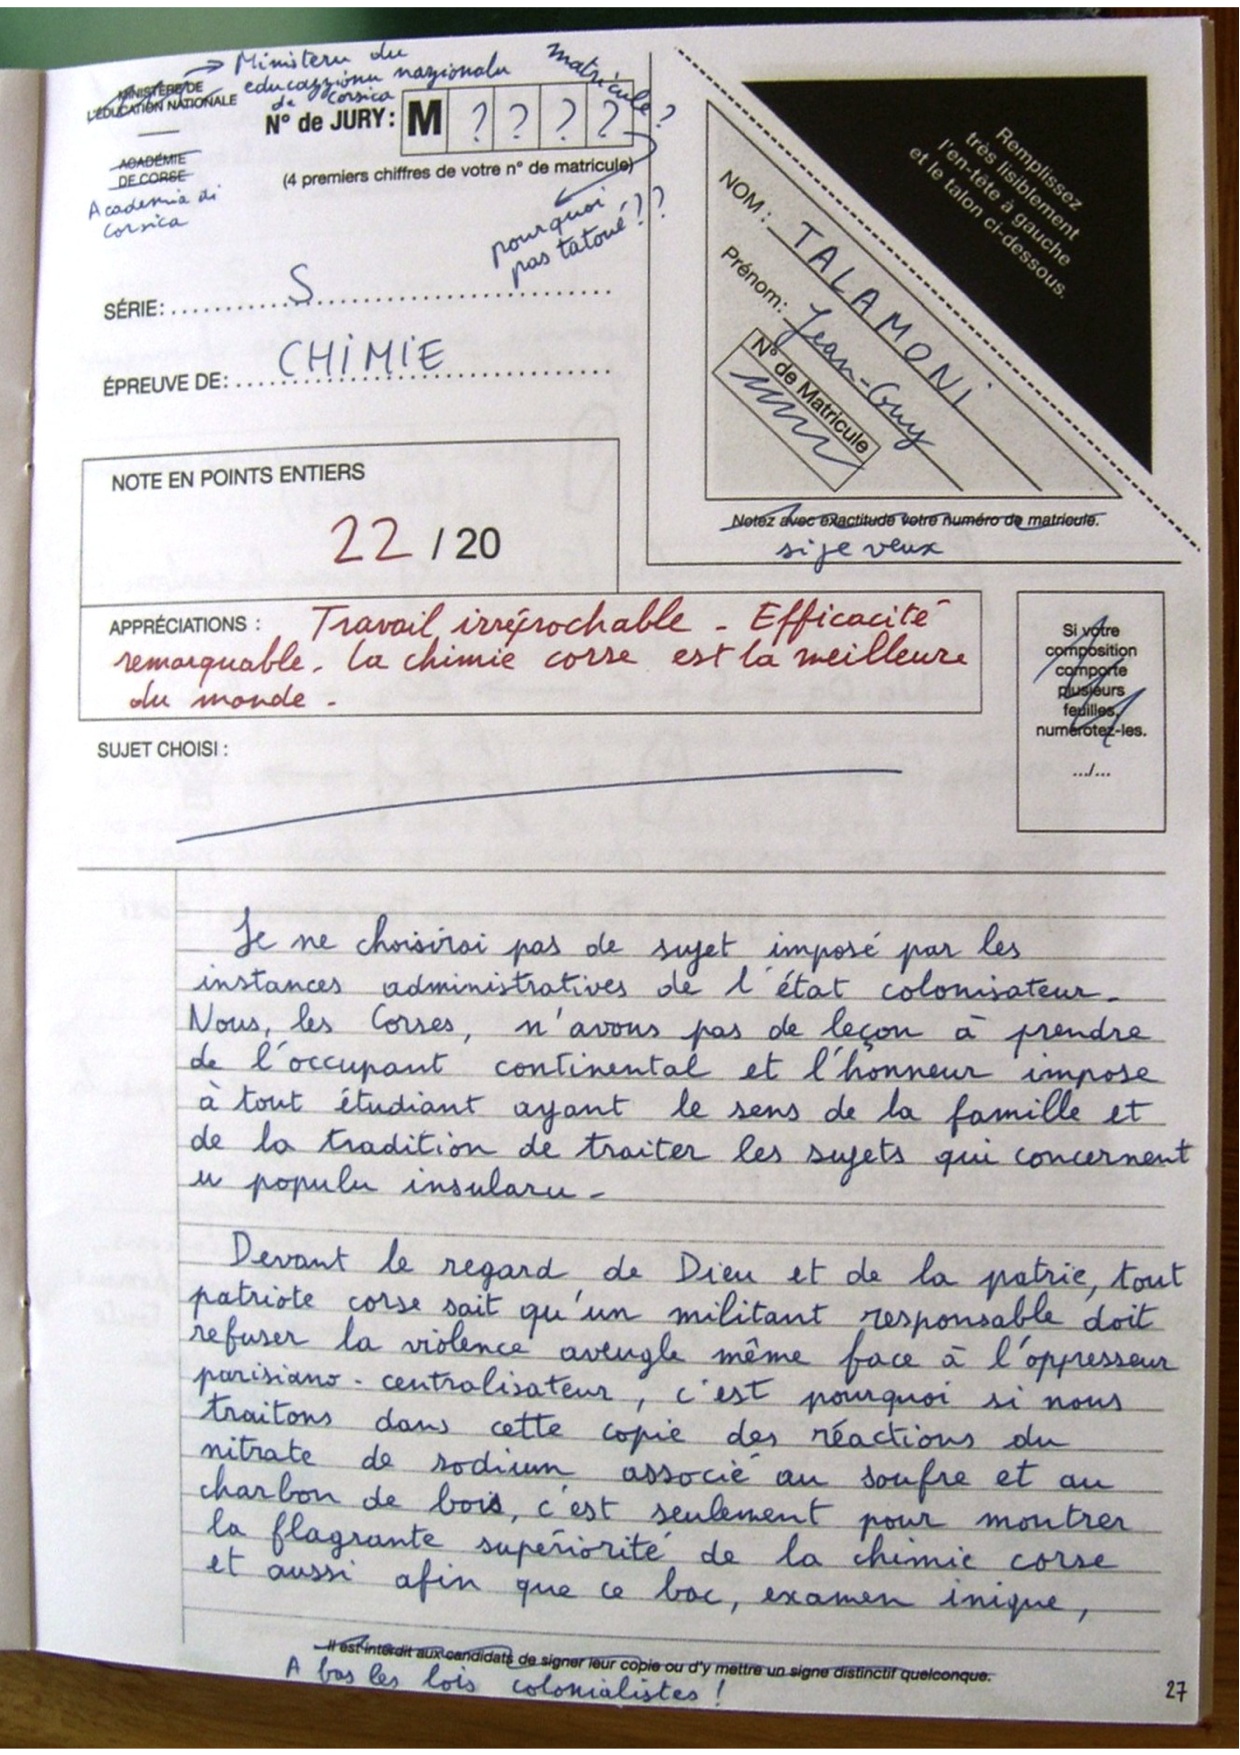 MINISTÈRE DE
L'ÉDUCATION NATIONALE
Ministeru du
educazzionu nazionalu
de Corsica
matricule ?
N° de JURY : M ? ? ? ?
(4 premiers chiffres de votre n° de matricule)
pourquoi
pas tatoué ??
ACADÉMIE
DE CORSE
Academia di
Corsica
SÉRIE : S
ÉPREUVE DE : CHIMIE
Remplissez
très lisiblement
l'en-tête à gauche
et le talon ci-dessous.
NOM : TALAMONI
Prénom: Jean-Guy
N° de Matricule
Notez avec exactitude votre numéro de matricule.
si je veux
NOTE EN POINTS ENTIERS
22 / 20
APPRÉCIATIONS : Travail irréprochable - Efficacité
remarquable. La chimie corse est la meilleure
du monde -
Si votre
composition
comporte
plusieurs
feuilles,
numérotez-les.
.../...
SUJET CHOISI :
Je ne choisirai pas de sujet imposé par les
instances administratives de l'état colonisateur.
Nous, les Corses, n'avons pas de leçon à prendre
de l'occupant continental et l'honneur impose
à tout étudiant ayant le sens de la famille et
de la tradition de traiter les sujets qui concernent
u populu insularu -
Devant le regard de Dieu et de la patrie, tout
patriote corse sait qu'un militant responsable doit
refuser la violence aveugle même face à l'oppresseur
parisiano-centralisateur, c'est pourquoi si nous
traitons dans cette copie des réactions du
nitrate de sodium associé au soufre et au
charbon de bois, c'est seulement pour montrer
la flagrante supériorité de la chimie corse
et aussi afin que ce bac, examen inique,
Il est interdit aux candidats de signer leur copie ou d'y mettre un signe distinctif quelconque.
A bas les lois colonialistes !
27